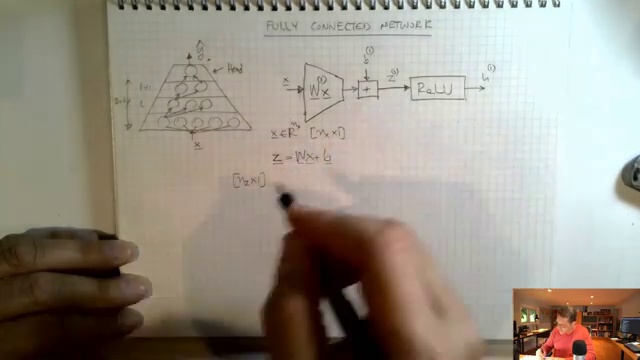 FULLY CONNECTED NETWORK
ŷ
Head
l+1
l
x
x
W^(1) x
b^(1)
+
z^(1)
ReLU
h^(1)
x ∈ R^{n_x} [n_x×1]
z = Wx + b
[n_z×1]